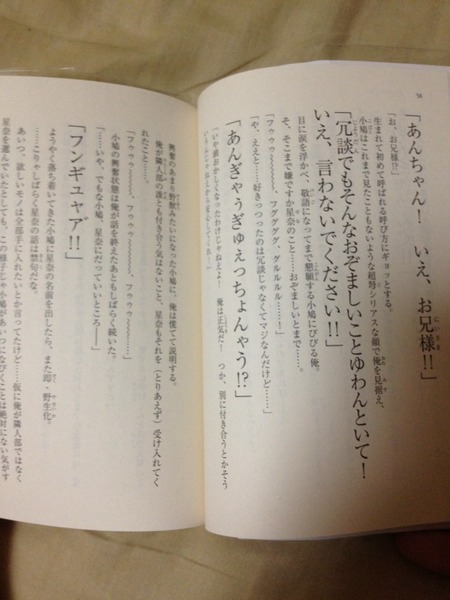 58
「あんちゃん！　いえ、お兄様!!」
「お、お兄様!?」
生まれて初めて呼ばれる呼び方にギョッとする。
小鳩はこれまで見たこともないような超弩シリアスな顔で俺を見据え、
「冗談でもそんなおぞましいことゆわんといて！
いえ、言わないでください!!」
目に涙を浮かべ、敬語になってまで懇願する小鳩にびびる俺。
そ、そこまで嫌ですか星奈のこと……おぞましいとまで……。
「や、ええと……好きっつったのは冗談じゃなくてマジなんだけど……」
「フゥゥゥ～～～～、フグググググ、グルルルル……！」
「あんぎゃうぎゅえっちょんゃう!?」
俺は正気だ！　つか、別に付き合うとかそう
興奮のあまり野獣みたいになった小鳩に、俺は慌てて説明する。
俺が隣人部の誰とも付き合う気はないこと、星奈もそれを（とりあえず）受け入れてく
れたこと……。
「フゥゥゥ～～～～、フゥゥゥ～～～～」
小鳩の興奮状態は俺が話を終えたあともしばらく続いた。
「……いや、でもな小鳩、星奈にだっていいところ――」
「フンギュャア!!」
ようやく落ち着いてきた小鳩に星奈の名前を出したら、また即・野生化。
……こりゃしばらく星奈の話は禁句だな。
あいつ、欲しいモノは全部手に入れたいとか言ってたけど……仮に俺が隣人部ではなく
星奈を選んでいたとしても、この様子じゃ小鳩があいつになびくことは絶対にない気がす